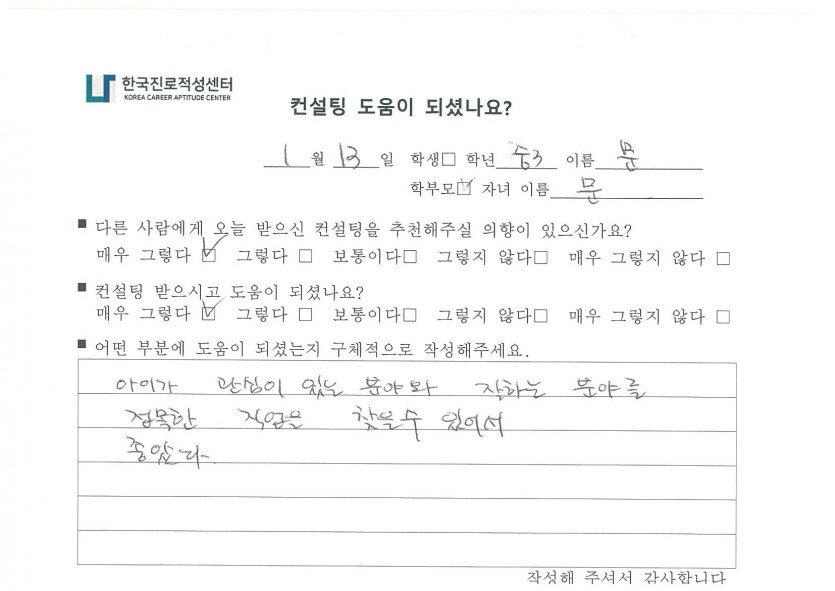 한국진로적성센터
KOREA CAREER APTITUDE CENTER
컨설팅 도움이 되셨나요?
1월 13일 학생□ 학년 중3 이름 문
학부모☑ 자녀 이름 문
■ 다른 사람에게 오늘 받으신 컨설팅을 추천해주실 의향이 있으신가요?
매우 그렇다 ☑ 그렇다 □ 보통이다□ 그렇지 않다□ 매우 그렇지 않다 □
■ 컨설팅 받으시고 도움이 되셨나요?
매우 그렇다 ☑ 그렇다 □ 보통이다□ 그렇지 않다□ 매우 그렇지 않다 □
■ 어떤 부분에 도움이 되셨는지 구체적으로 작성해주세요.
아이가 관심이 있는 분야와 잘하는 분야를
접목한 직업을 찾을수 있어서
좋았다.
작성해 주셔서 감사합니다